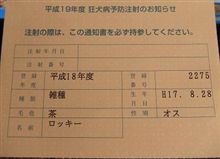 平成19年度 狂犬病予防注射のお知らせ
注射の際は、この通知書を必ず持参してください。
注射年月日
注射番号
登録年度 平成18年度 登録番号 2275
種類 雑種 生年月日 H17. 8.28
毛色 茶 性別 オス
名前 ロッキー